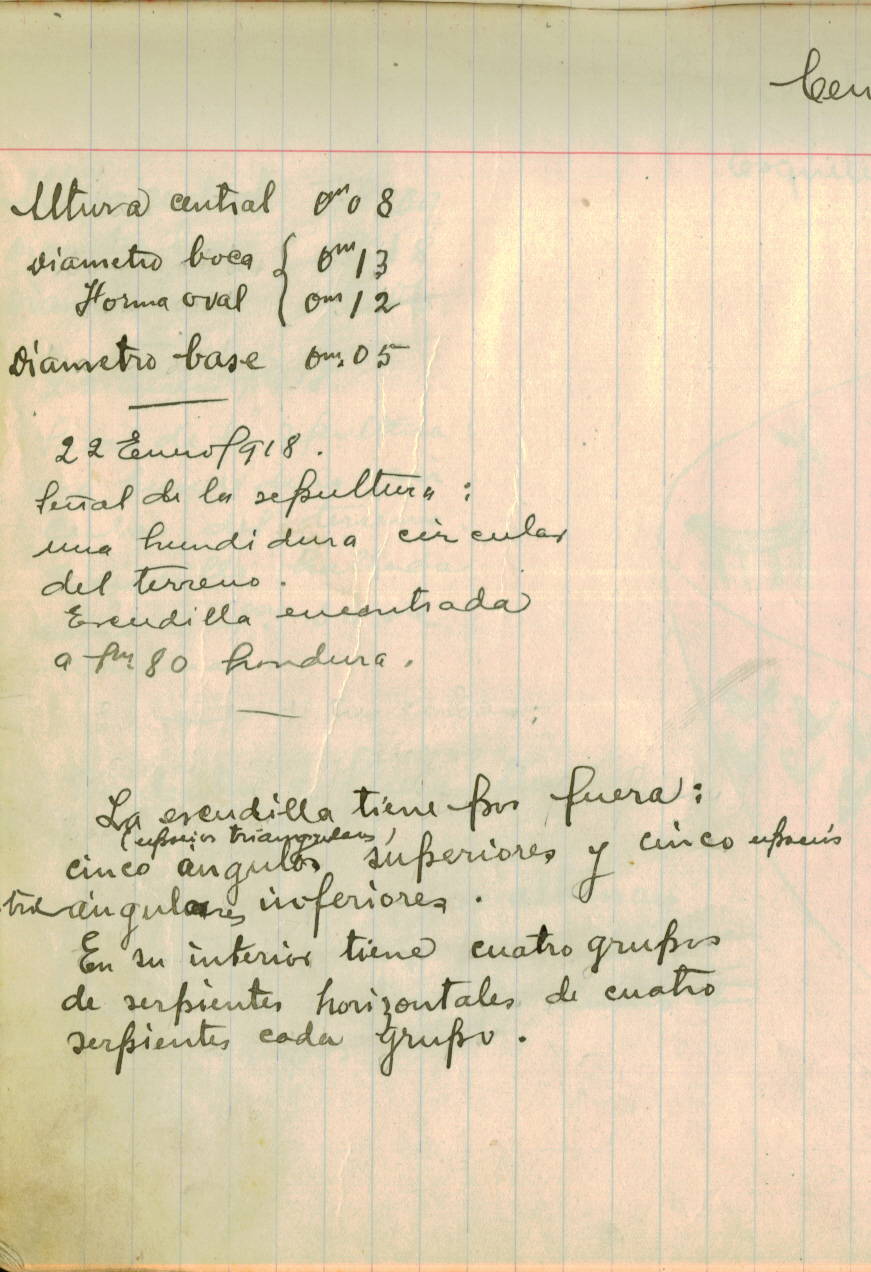 Cen
Altura central 0m08
Diametro boca { 0m13
Forma oval { 0m12
Diametro base 0m.05
22 Enero/918.
Señal de la sepultura:
una hundidura circular
del terreno.
Escudilla encontrada
a 1m80 hondura.
La escudilla tiene por fuera:
(espacios triangulares)
cinco angulos superiores y cinco espacios
triangulares inferiores.
En su interior tiene cuatro grupos
de serpientes horizontales de cuatro
serpientes cada grupo.